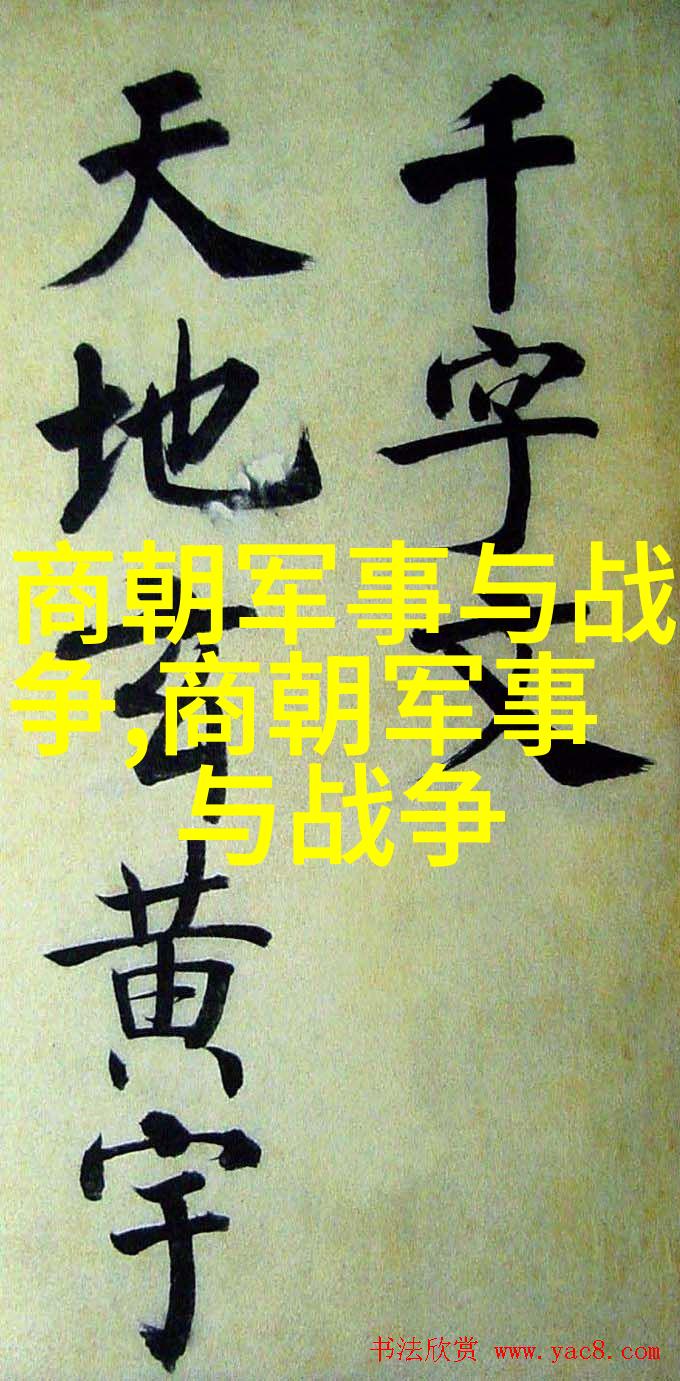 千字文
天地玄黄宇
商朝军事与战
争,商朝军事
与战争
书法欣赏 www.yac8.com